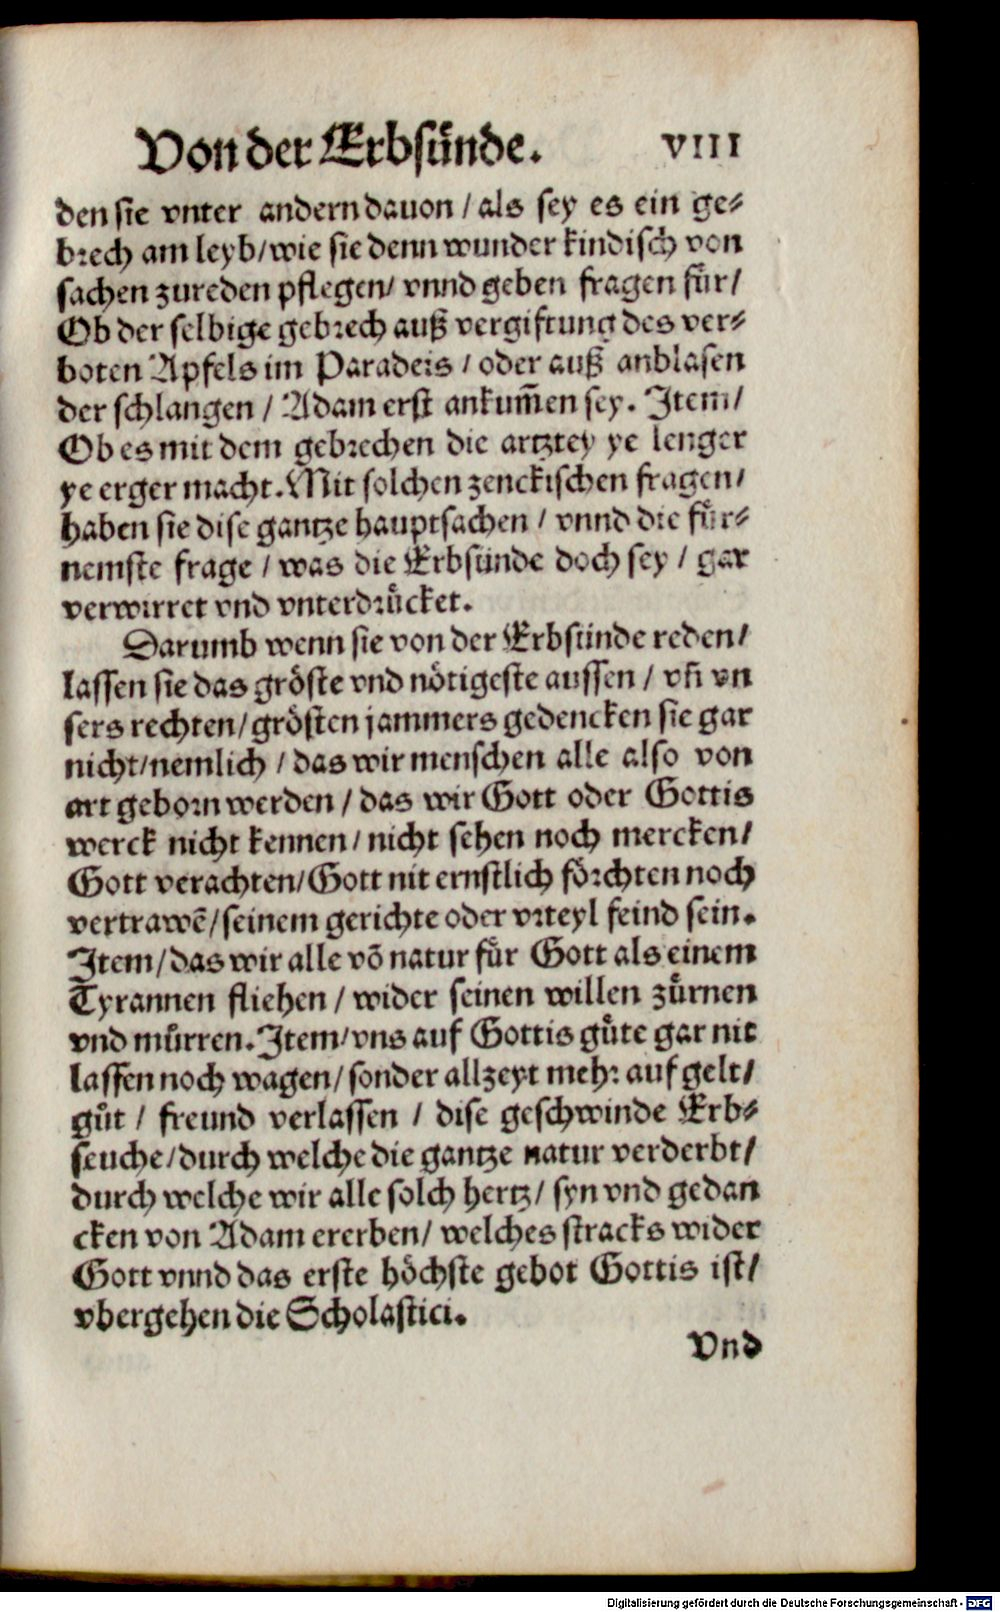 Von der Erbsünde. VIII
den sie vnter andern dauon / als sey es ein ge-
brech am leyb/wie sie denn wunder kindisch von
sachen zureden pflegen/ vnnd geben fragen für/
Ob der selbige gebrech auß vergifftung des ver-
boten Apfels im Paradeis / oder auß anblasen
der schlangen / Adam erst ankum̄en sey. Item/
Ob es mit dem gebrechen die artztey ye lenger
ye erger macht. Mit solchen zenckischen fragen/
haben sie dise gantze hauptsachen / vnnd die für-
nemste frage / was die Erbsünde doch sey / gar
verwirret vnd vnterdrücket.
Darumb wenn sie von der Erbsünde reden/
lassen sie das gröste vnd nötigeste aussen / vn̄ vn
sers rechten/grösten jammers gedencken sie gar
nicht/nemlich / das wir menschen alle also von
art geborn werden / das wir Gott oder Gottis
werck nicht kennen / nicht sehen noch mercken/
Gott verachten/Gott nit ernstlich förchten noch
vertrawē/seinem gerichte oder vrteyl feind sein.
Item/das wir alle võ natur für Gott als einem
Tyrannen fliehen / wider seinen willen zürnen
vnd mürren. Item/vns auf Gottis güte gar nit
lassen noch wagen/sonder allzeyt mehr auf gelt/
gůt / freund verlassen / dise geschwinde Erb-
seuche/durch welche die gantze natur verderbt/
durch welche wir alle solch hertz/ syn vnd gedan
cken von Adam ererben/ welches stracks wider
Gott vnnd das erste höchste gebot Gottis ist/
vbergehen die Scholastici.
Vnd
Digitalisierung gefördert durch die Deutsche Forschungsgemeinschaft - DFG